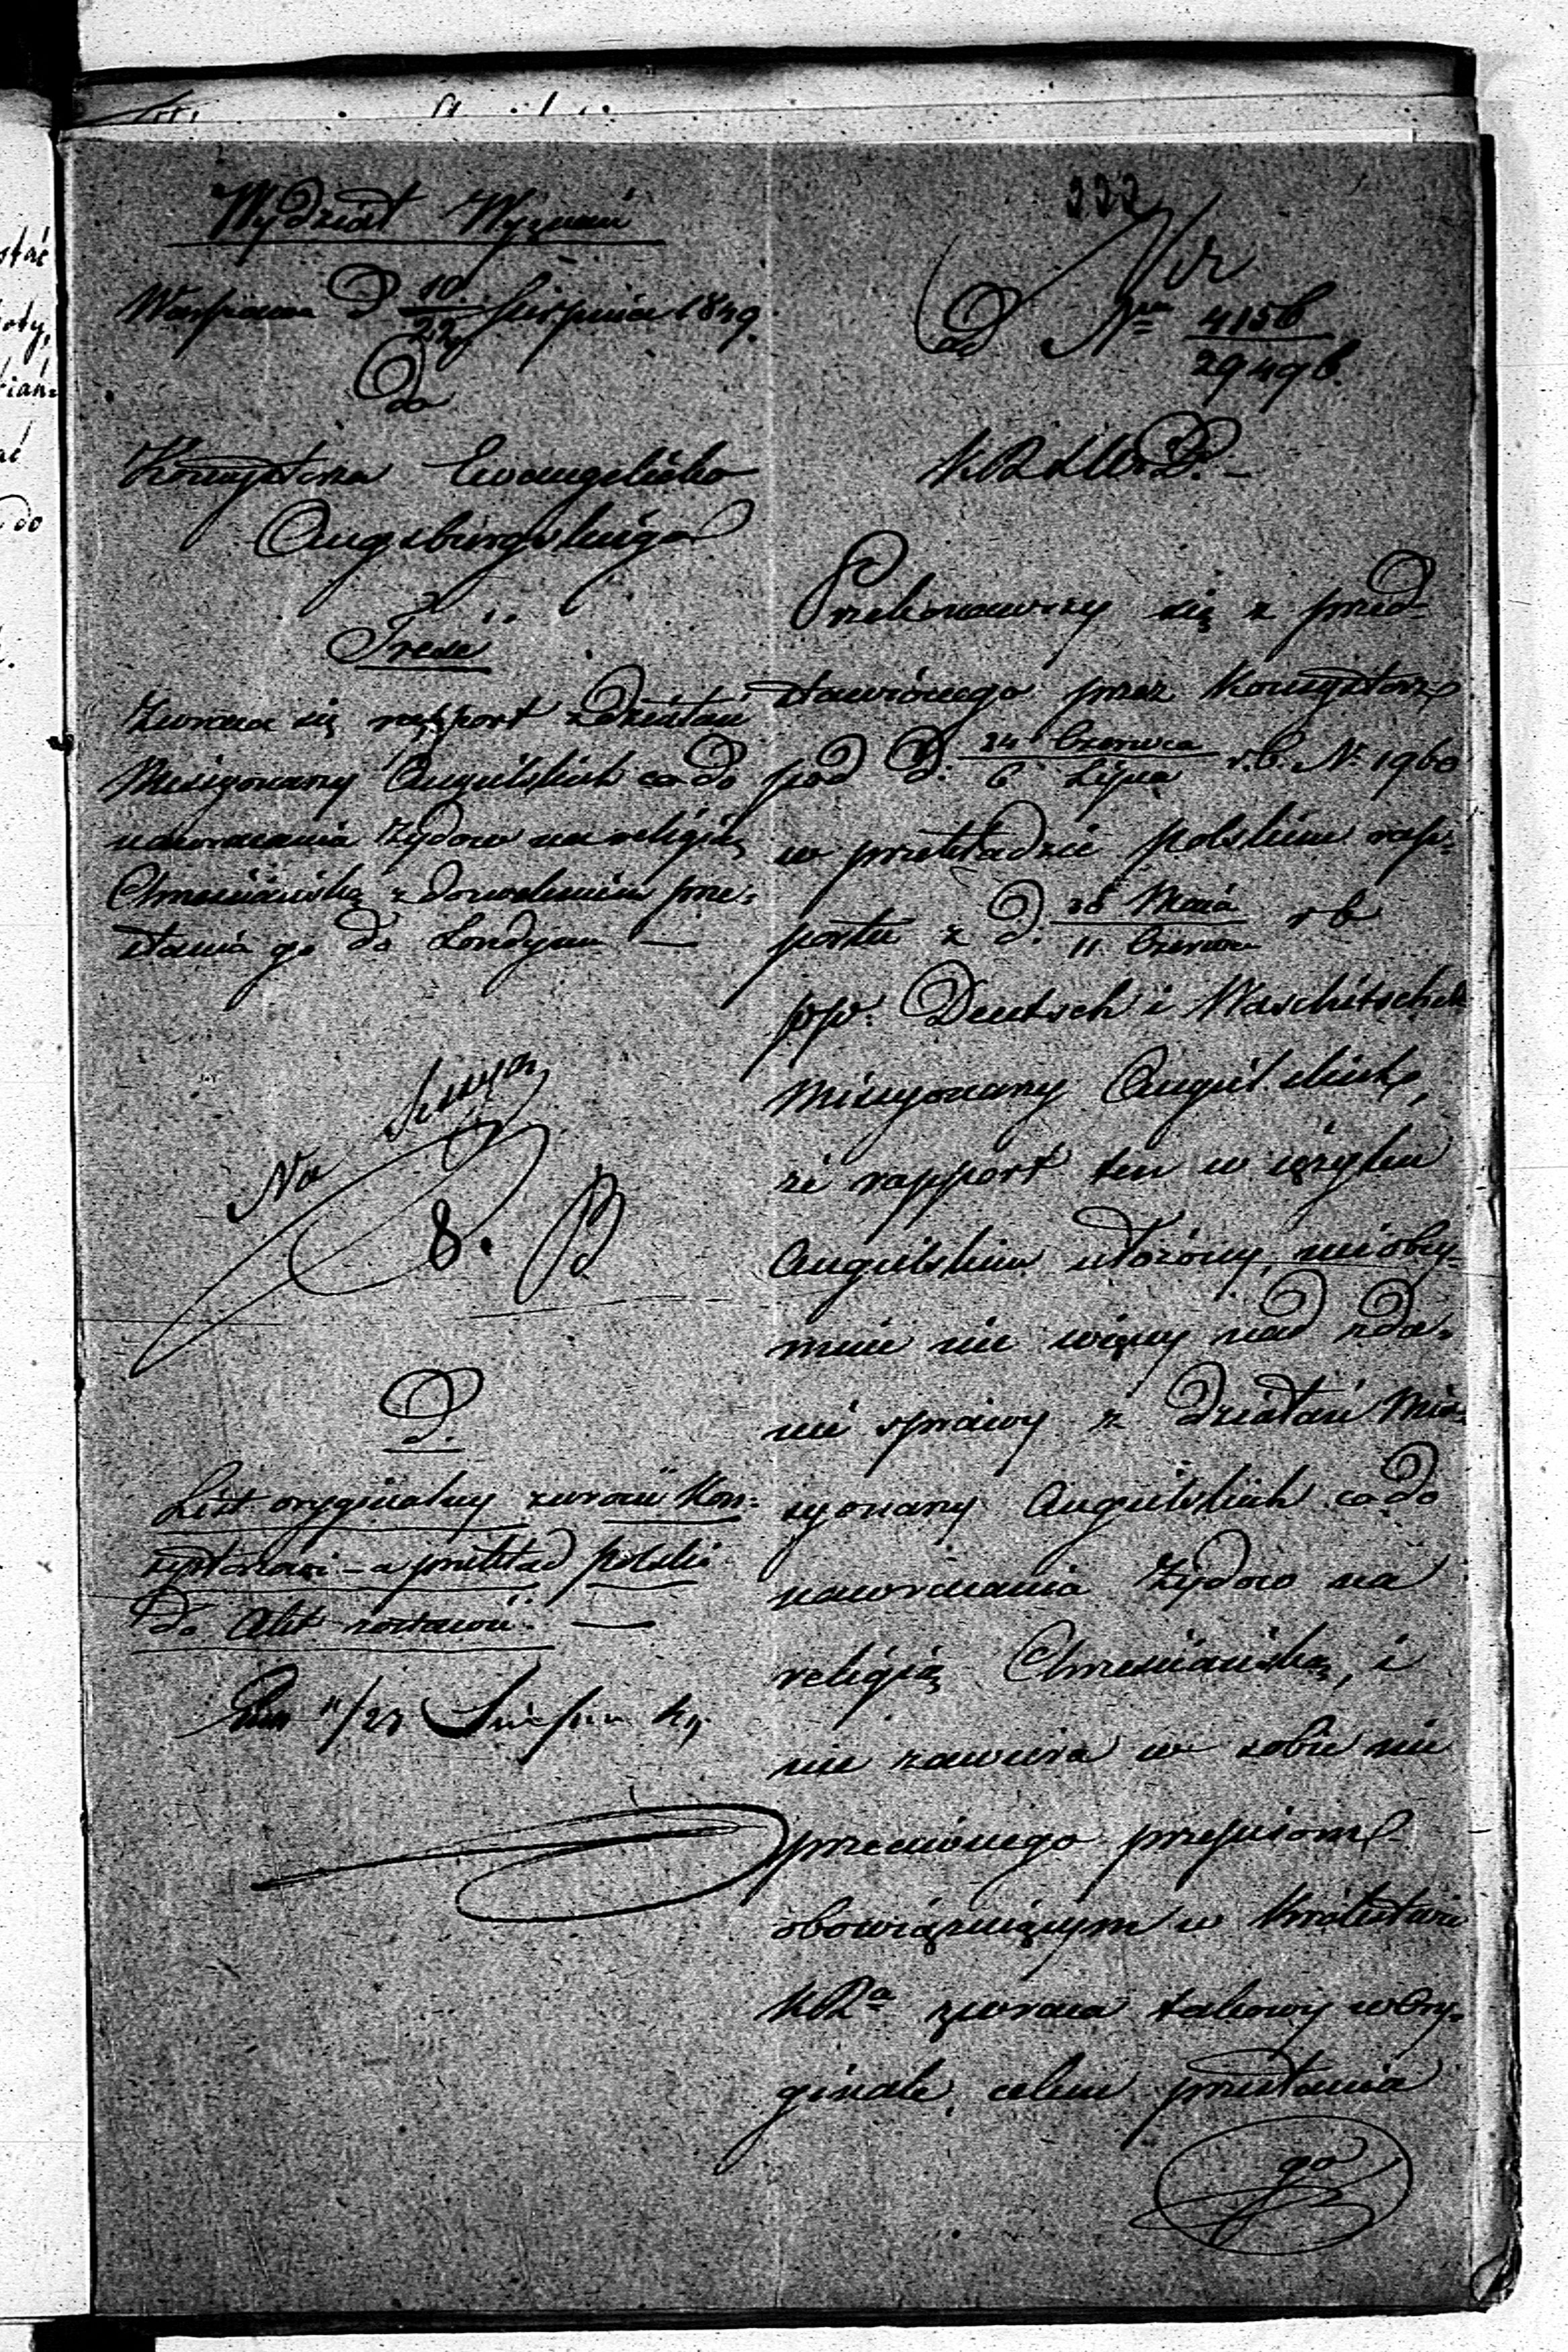 Wydział Wyznań
Warszawa d 10/22 Sierpnia 1849.
do
Konsystorza Ewangelicko
Augsburgskiego
Treść
Zwraca się rapport z działań
Missyonarzy Angielskich co do
nawracania Żydów na religią
Chrześciańską z dozwoleniem prze-
słania go do Londynu —
No
8.
d.
List oryginalny zwrócić Kon-
systorzowi – a przekład polski
do Akt zostawić. —
11/23 Sierpn
222
ad Nra 4156/29496.
K R S W i D. –
Przekonawszy się z przed-
stawionego przez Konsystorz
pod d. 24 Czerwca/6 Lipca r.b. Nr 1960
w przekładzie polskim rap-
portu z d. 30 Maia/11 Czerwca r b
pp. Deutsch i Waschitscheck
Missyonarzy Angielskich,
że rapport ten w ięzyku
Angielskim ułożony, nieobey-
muie nic więcey nad zda-
nie sprawy z działań Mis-
syonarzy Angielskich co do
nawracania Żydów na
religią Chrześciańską, i
nie zawiera w sobie nic
przeciwnego przepisom
obowiązuiącym w Królestwie
KRa zwraca takowy w Ory-
ginale, celem przesłania
go